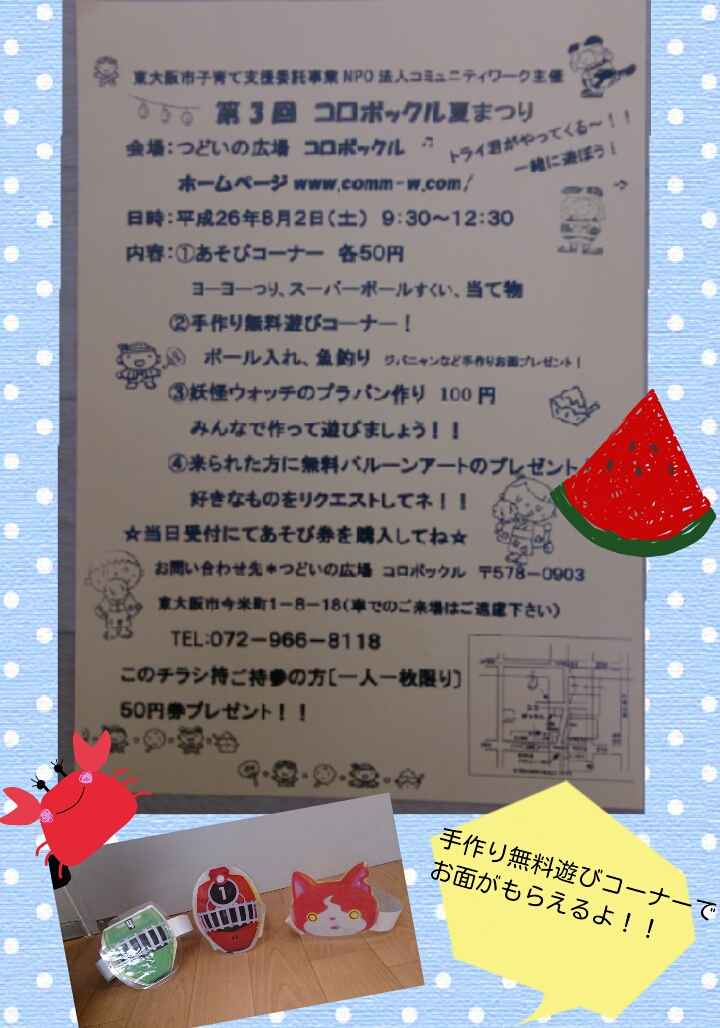 東大阪市子育て支援委託事業 NPO 法人コミュニティワーク主催
第3回 コロボックル夏まつり
会場：つどいの広場 コロボックル ♬
トライ君がやってくる～！！
一緒に遊ぼう！
ホームページ www.comm-w.com/
日時：平成26年8月2日(土) 9：30～12：30
内容：①あそびコーナー 各50円
ヨーヨーつり、スーパーボールすくい、当て物
②手作り無料遊びコーナー！
ボール入れ、魚釣り ジバニャンなど手作りお面プレゼント！
③妖怪ウォッチのプラバン作り 100円
みんなで作って遊びましょう！！
④来られた方に無料バルーンアートのプレゼント
好きなものをリクエストしてネ！！
☆当日受付にてあそび券を購入してね☆
お問い合わせ先＊つどいの広場 コロボックル 〒578－0903
東大阪市今米町1－8－18(車でのご来場はご遠慮下さい)
TEL：072－966－8118
このチラシ持ご持参の方〔一人一枚限り〕
50円券プレゼント！！
手作り無料遊びコーナーで
お面がもらえるよ！！
1